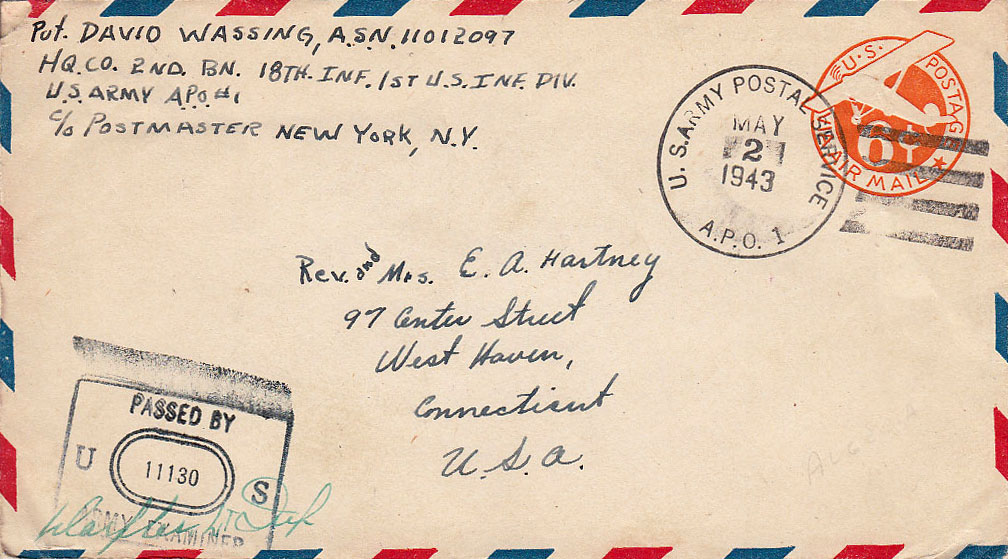 Pvt. DAVID WASSING, A.S.N. 11012097
HQ. CO. 2ND. BN. 18TH. INF. 1ST U.S. INF. DIV.
U.S. ARMY A.P.O. #1
C/O POSTMASTER NEW YORK, N.Y.
U.S. POSTAGE
6¢
VIA AIR MAIL
U.S. ARMY POSTAL SERVICE
MAY
2
1943
A.P.O. 1
Rev. and Mrs. E. A. Hartney
97 Center Street
West Haven,
Connecticut
U.S.A.
PASSED BY
U 11130 S
ARMY EXAMINER